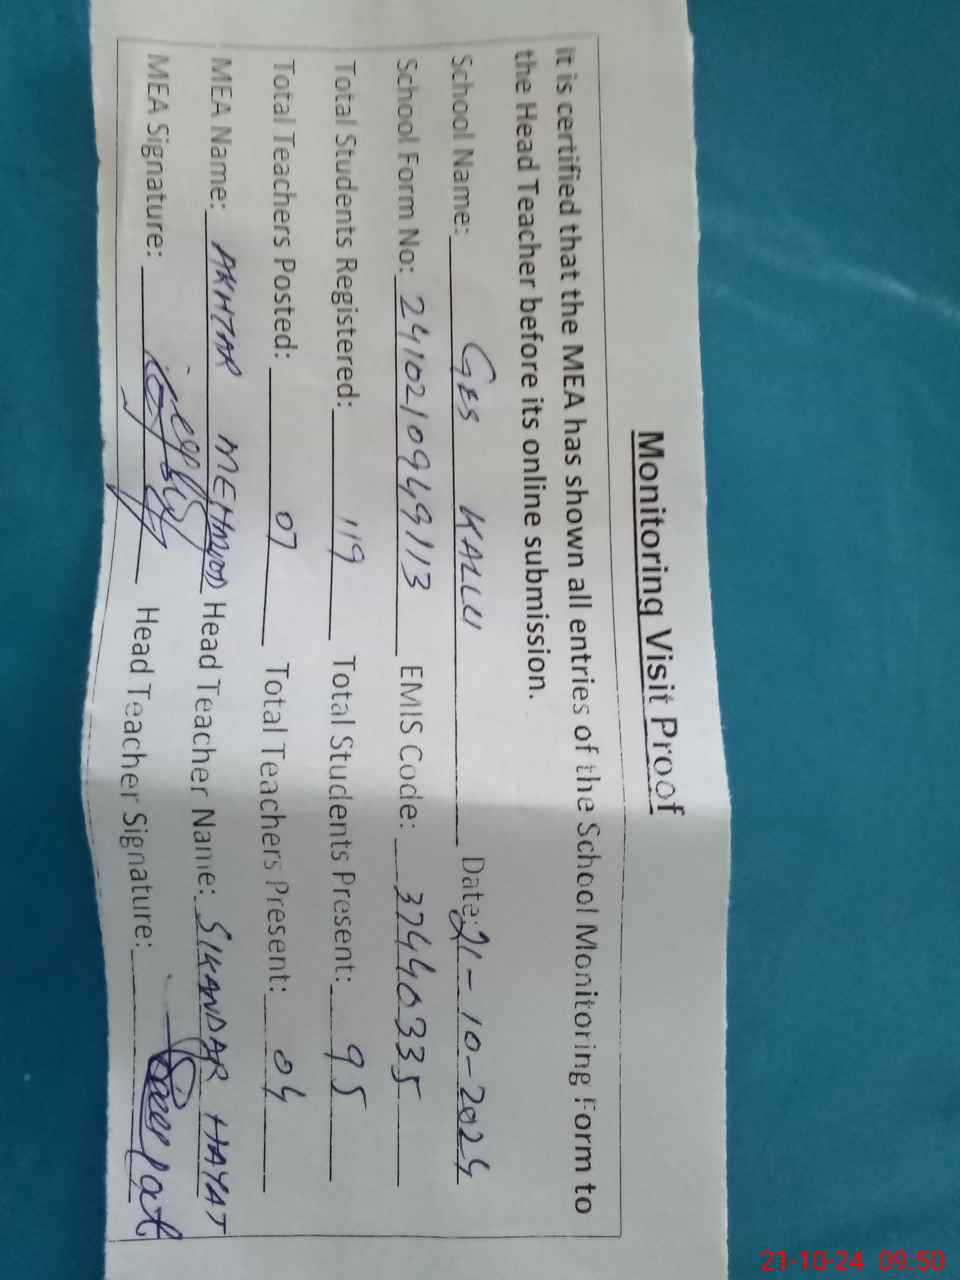 Monitoring Visit Proof
It is certified that the MEA has shown all entries of the School Monitoring Form to
the Head Teacher before its online submission.
School Name: GES KALLU Date: 21-10-2024
School Form No: 2410210949113 EMIS Code: 37440335
Total Students Registered: 119 Total Students Present: 95
Total Teachers Posted: 07 Total Teachers Present: 04
MEA Name: AKHTAR MEHMOOD Head Teacher Name: SIKANDAR HAYAT
MEA Signature: Head Teacher Signature:
21-10-24 09:50